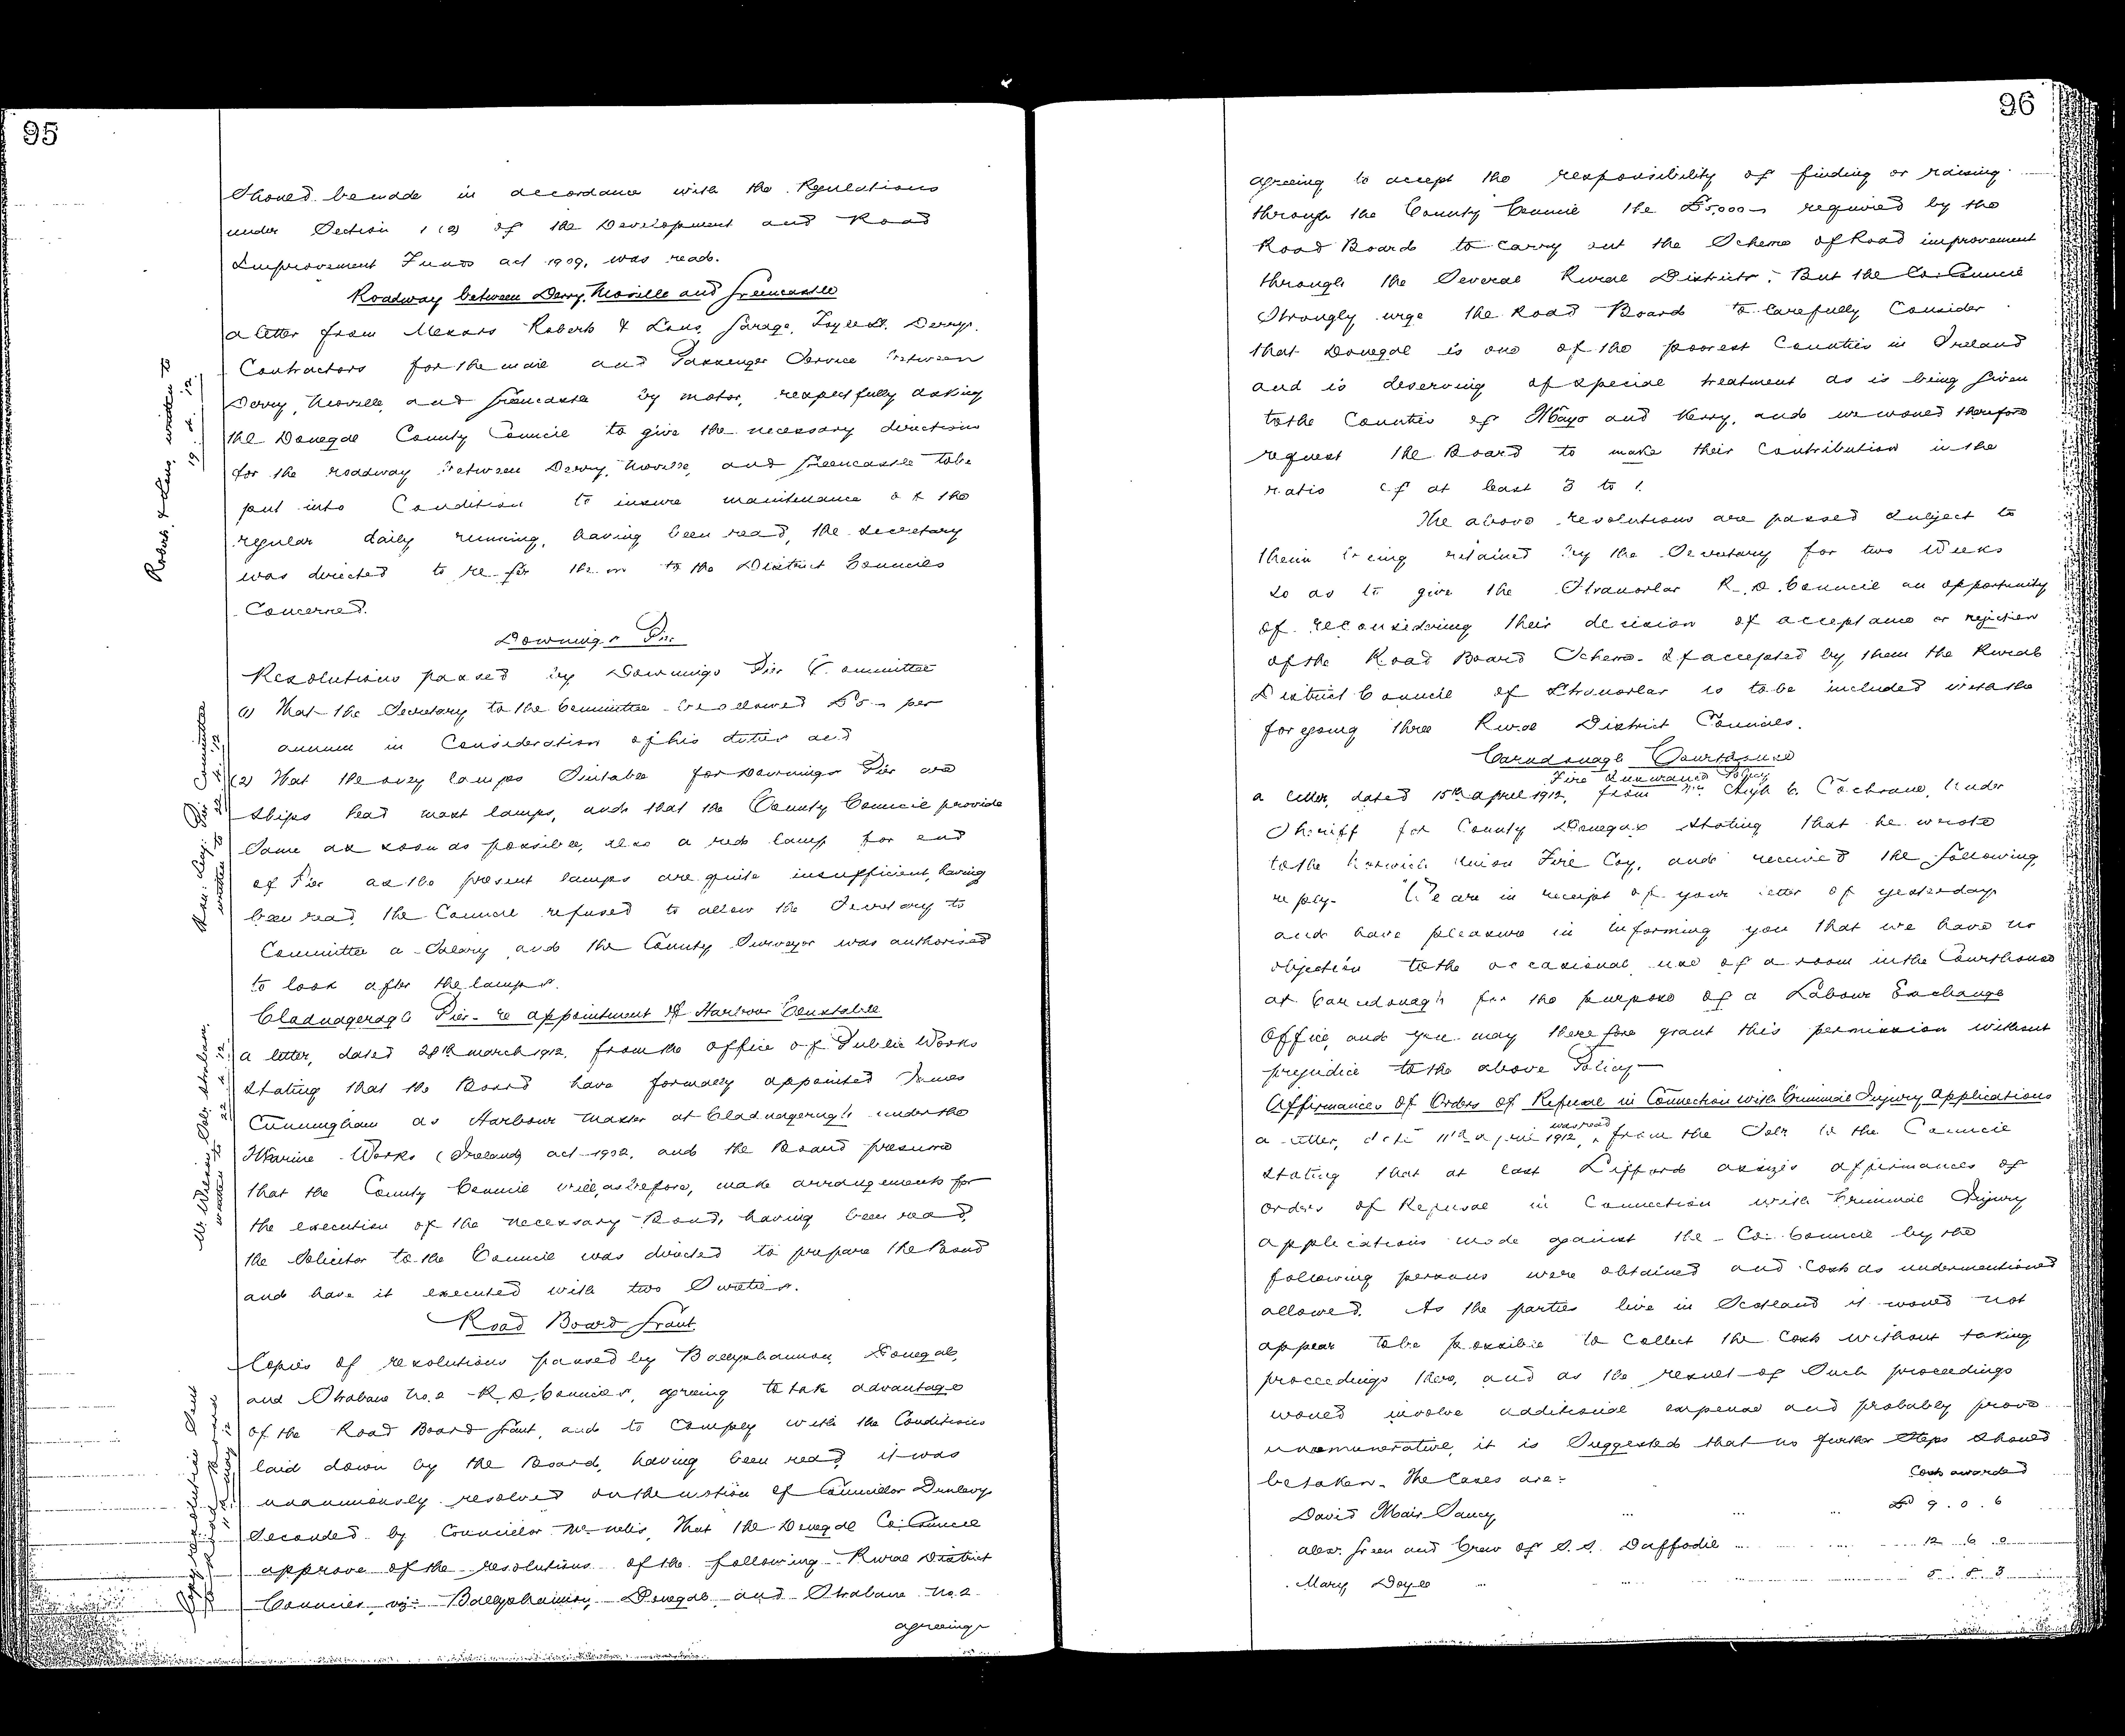 95
should be made in accordance with the Regulations
under Section 1 (2) of the Development and Road
Improvement Funds act 1909, was read.
Roadway between Derry, Moville and Greencastle
a letter from Messrs Roberts & Lens, Garage, Foyle St. Derry.
Contractors for the mail and Passenger Service between
Derry, Moville, and Greencastle by motor, respectfully asking
the Donegal County Council to give the necessary directions
for the roadway between Derry, Moville, and Greencastle to be
put into Condition to insure maintenance of the
regular daily running, having been read, the Secretary
was directed to refer them to the District Councils
Concerned.
Roberts & Lens, written to
19. 4. 12.
Downings Pier
Resolutions passed by Downings Pier Committee
(1) That the Secretary to the Committee be allowed £5 - per
annum in Consideration of his duties and
(2) That the only lamps Suitable for Downings Pier are
Ships head mast lamps, and that the County Council provide
Same as soon as possible, also a red lamp for end
of Pier as the present lamps are quite insufficient, having
been read, the Council refused to allow the Secretary to
Committee a Salary, and the County Surveyor was authorised
to look after the lamps.
Hon: Secy: Pier Committee
written to 22. 4. 12
Cladnageragh Pier - re appointment of Harbour Constable
a letter, dated 28th march 1912, from the office of Public Works
Stating that the Board have formally appointed James
Cunningham as Harbour master at Cladnageragh under the
Marine Works (Ireland) act 1902, and the Board presume
that the County Council will, as before, make arrangements for
the execution of the necessary Bond, having been read,
the Solicitor to the Council was directed to prepare the Bond
and have it executed with two Sureties.
Mr. Wilson Solr. Strabane,
written to 22. 4. 12.
Road Board Grant
Copies of resolutions passed by Ballyshannon, Donegal,
and Strabane No. 2 R. D. Councils, agreeing to take advantage
of the Road Board Grant, and to Comply with the Conditions
laid down by the Board, having been read, it was
unanimously resolved on the motion of Councillor Dunlevy
Seconded by Councillor McNelis, That the Donegal Co: Council
approve of the resolutions of the following Rural District
Councils, viz:- Ballyshannon, Donegal, and Strabane No. 2
agreeing
Copy resolution Sent
to Road Board
11th May 12
96
agreeing to accept the responsibility of finding or raising
through the County Council the £5,000 - required by the
Road Board to Carry out the Scheme of Road improvement
through the Several Rural Districts. But the Co: Council
Strongly urge the Road Board to Carefully Consider
that Donegal is one of the poorest Counties in Ireland
and is deserving of special treatment as is being given
to the Counties of Mayo and Kerry, and we would therefore
request the Board to make their Contribution in the
ratio of at least 3 to 1.
The above resolutions are passed subject to
their being retained by the Secretary for two Weeks
so as to give the Stranorlar R. D. Council an opportunity
of reconsidering their decision of acceptance or rejection
of the Road Board Scheme. If accepted by them the Rural
District Council of Stranorlar is to be included with the
forgoing three Rural District Councils.
Carndonagh Courthouse
Fire Insurance Policy
a letter, dated 15th april 1912, from Mr Hugh C. Cochrane, Under
Sheriff for County Donegal Stating that he wrote
to the Norwich Union Fire Coy, and received the following
reply- We are in receipt of your letter of yesterday
and have pleasure in informing you that we have no
objection to the occasional use of a room in the Courthouse
at Carndonagh for the purpose of a Labour Exchange
Office, and you may therefore grant this permission without
prejudice to the above Policy -
Affirmances Of Orders Of Refusal in Connection with Criminal Injury Applications
a letter, date 11th april 1912, was read, from the Solr to the Council
Stating that at last Lifford assizes affirmances of
orders of Refusal in Connection with Criminal Injury
applications made against the Co: Council by the
following persons were obtained and Costs as undermentioned
allowed. As the parties live in Scotland it would not
appear to be possible to Collect the Costs without taking
proceedings there, and as the result of Such proceedings
would involve additional expense and probably prove
unremunerative, it is Suggested that no further Steps should
be taken. The Cases are:-
Costs awarded
David Mair Saucy ... £ 9. 0. 6
Alexr. Green and Crew of S.S. Daffodil ... 12 6 0
Mary Doyle ... 5. 8. 3